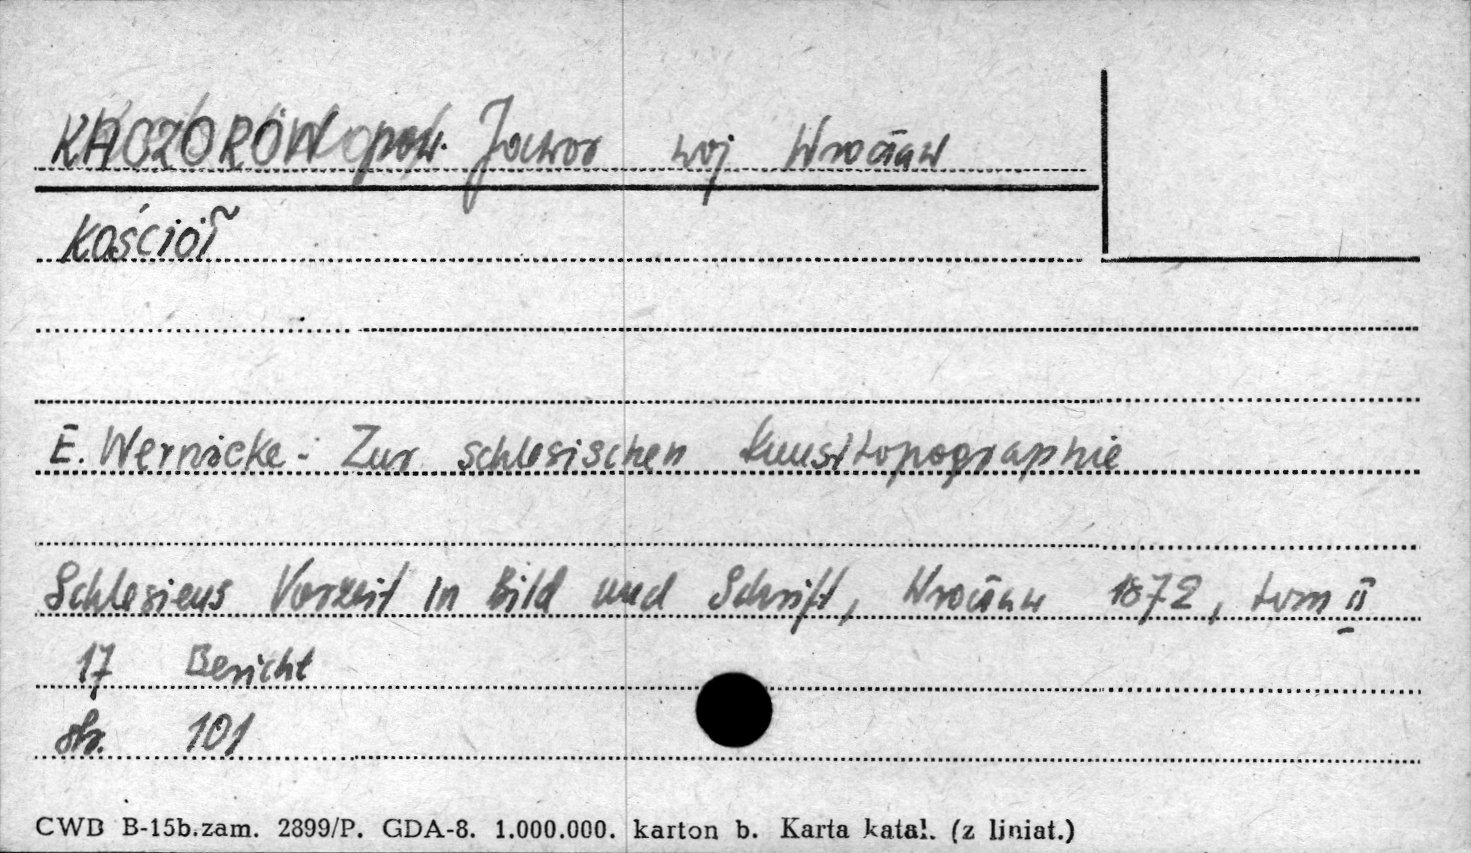 KACZORÓW pow. Jawor woj Wrocław
Kościół
E. Wernicke - Zur schlesischen Kunsttopographie
Schlesiens Vorzeit in Bild und Schrift, Wrocław 1872, tom II
17 Bericht
str. 101
CWD B-15b.zam. 2899/P. GDA-8. 1.000.000. karton b. Karta katal. (z liniat.)